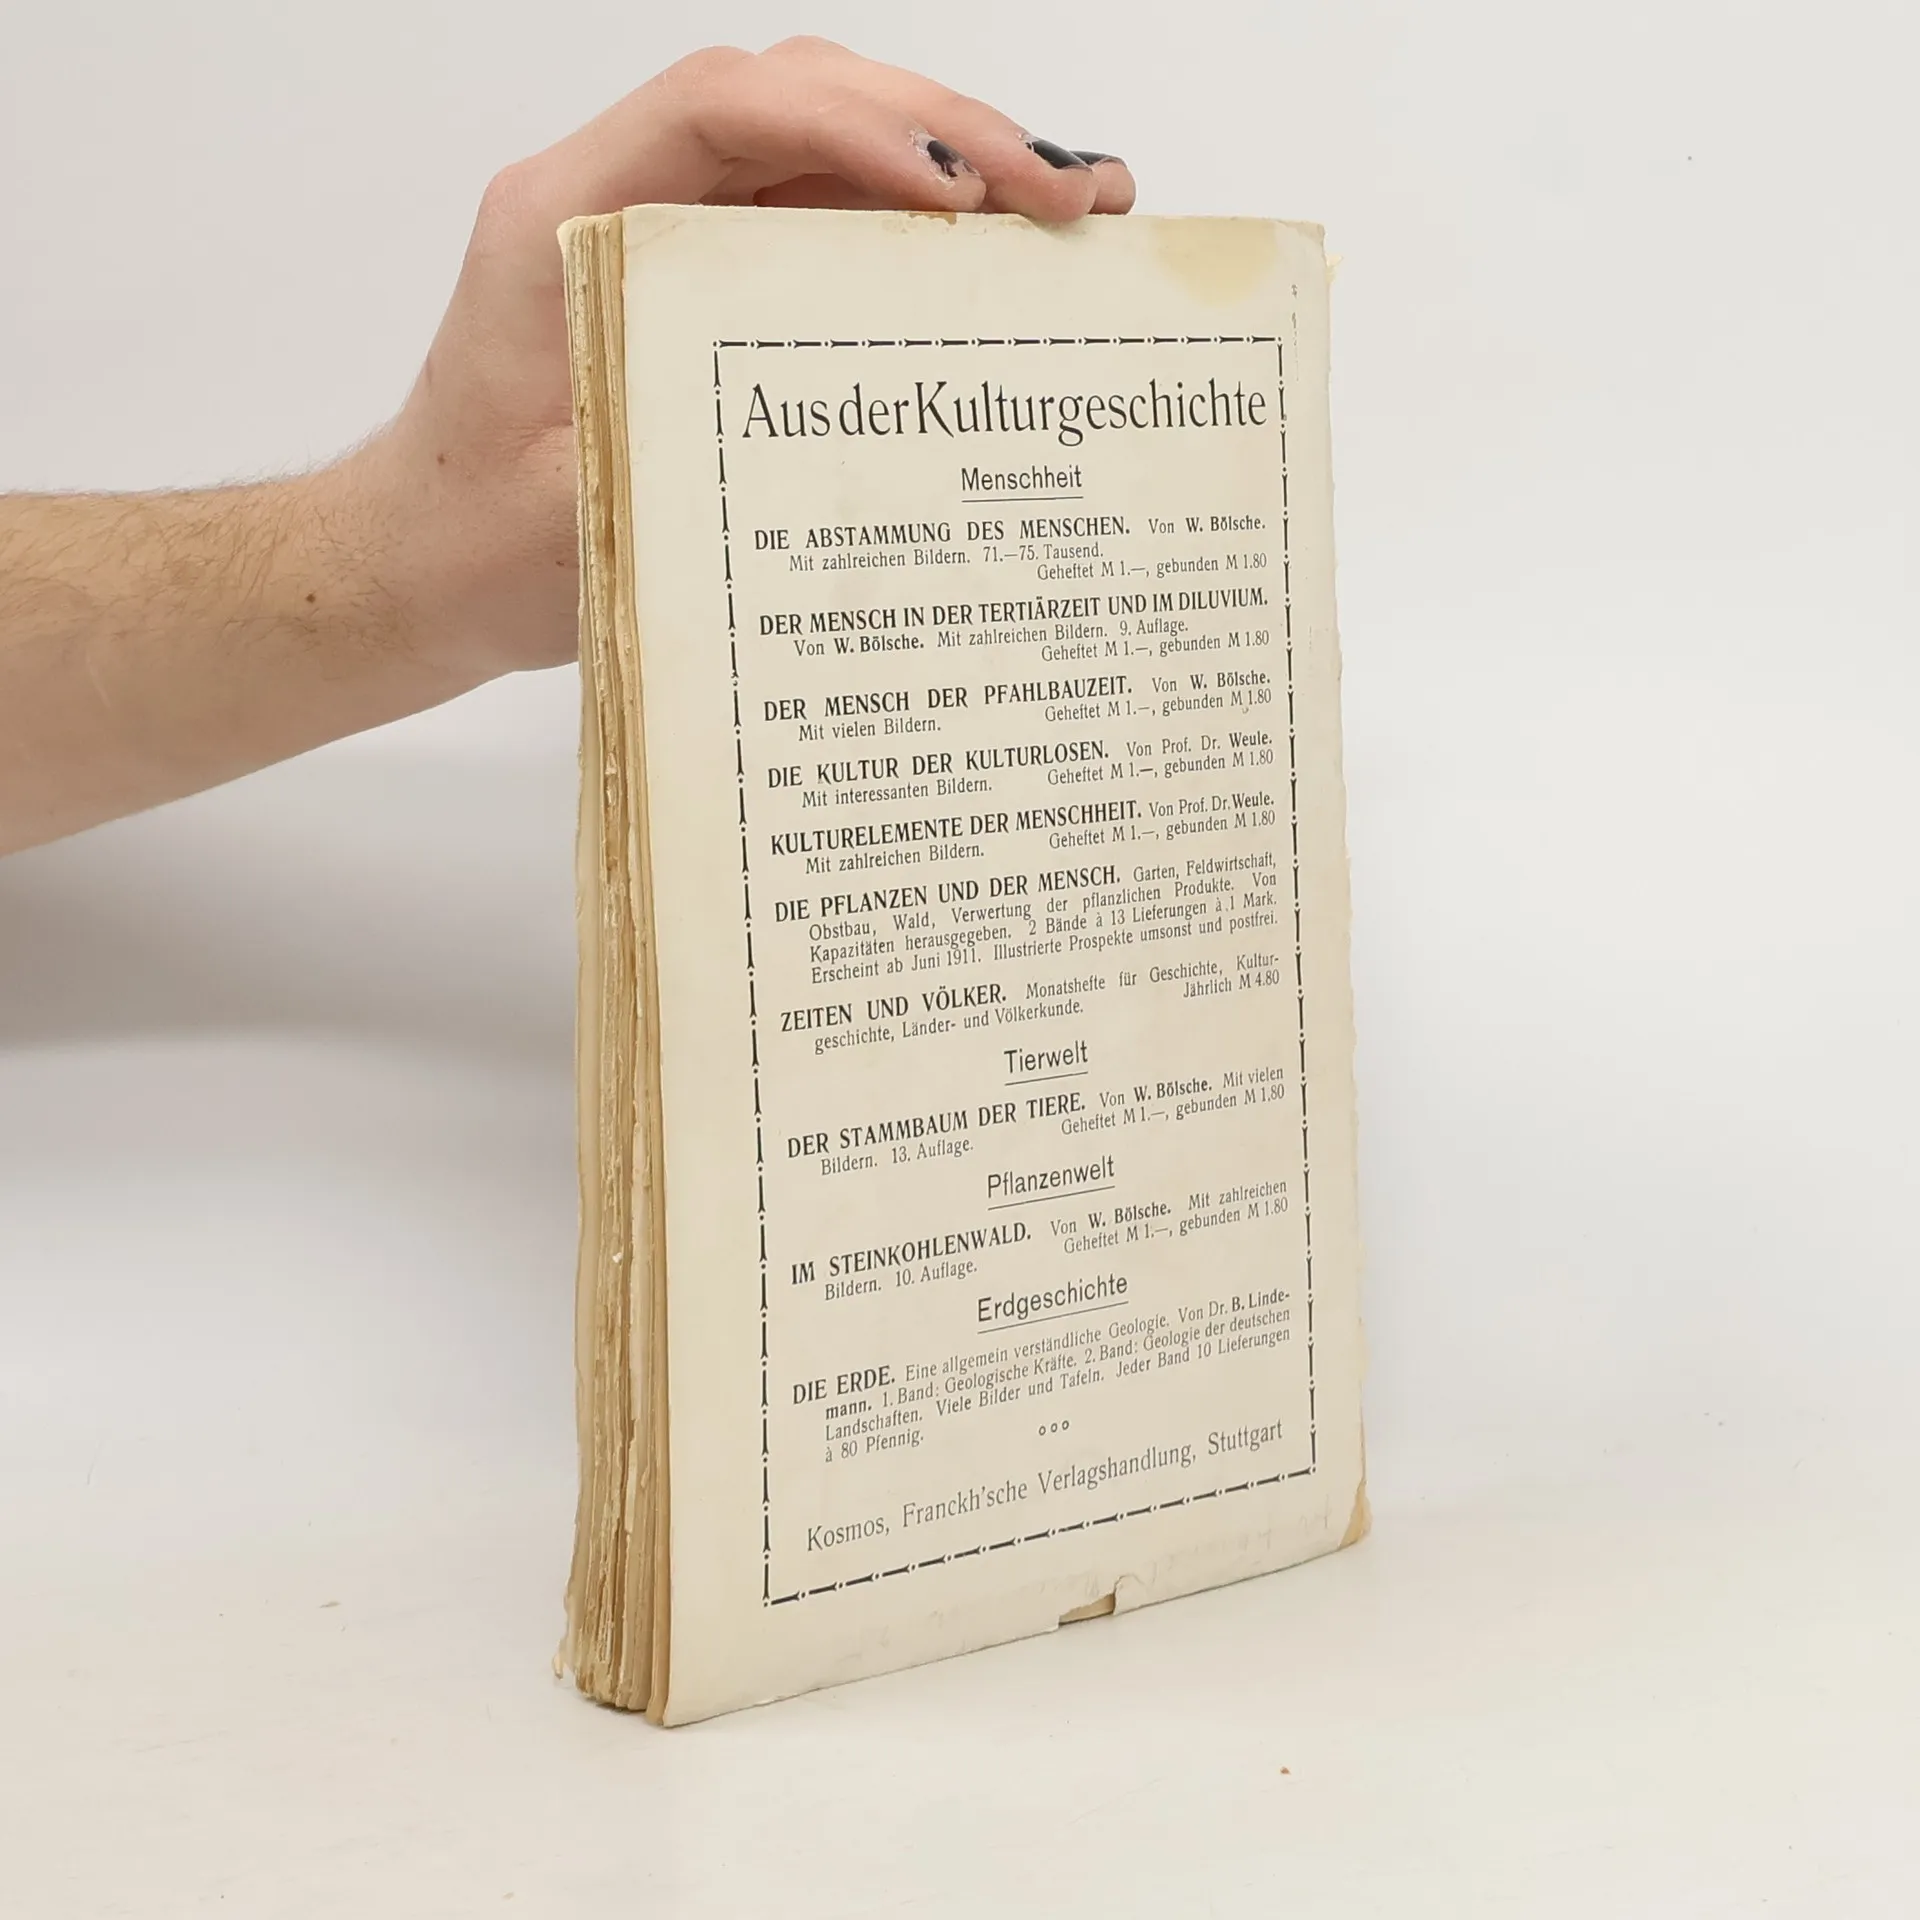 Aus der Kulturgeschichte
Menschheit
DIE ABSTAMMUNG DES MENSCHEN. Von W. Bölsche.
Mit zahlreichen Bildern. 71.—75. Tausend.
Geheftet M 1.—, gebunden M 1.80
DER MENSCH IN DER TERTIÄRZEIT UND IM DILUVIUM.
Von W. Bölsche. Mit zahlreichen Bildern. 9. Auflage.
Geheftet M 1.—, gebunden M 1.80
DER MENSCH DER PFAHLBAUZEIT. Von W. Bölsche.
Mit vielen Bildern. Geheftet M 1.—, gebunden M 1.80
DIE KULTUR DER KULTURLOSEN. Von Prof. Dr. Weule.
Mit interessanten Bildern. Geheftet M 1.—, gebunden M 1.80
KULTURELEMENTE DER MENSCHHEIT. Von Prof. Dr. Weule.
Mit zahlreichen Bildern. Geheftet M 1.—, gebunden M 1.80
DIE PFLANZEN UND DER MENSCH. Garten, Feldwirtschaft,
Obstbau, Wald, Verwertung der pflanzlichen Produkte. Von
Kapazitäten herausgegeben. 2 Bände à 13 Lieferungen à 1 Mark.
Erscheint ab Juni 1911. Illustrierte Prospekte umsonst und postfrei.
ZEITEN UND VÖLKER. Monatshefte für Geschichte, Kultur-
geschichte, Länder- und Völkerkunde. Jährlich M 4.80
Tierwelt
DER STAMMBAUM DER TIERE. Von W. Bölsche. Mit vielen
Bildern. 13. Auflage. Geheftet M 1.—, gebunden M 1.80
Pflanzenwelt
IM STEINKOHLENWALD. Von W. Bölsche. Mit zahlreichen
Bildern. 10. Auflage. Geheftet M 1.—, gebunden M 1.80
Erdgeschichte
DIE ERDE. Eine allgemein verständliche Geologie. Von Dr. B. Linde-
mann. 1. Band: Geologische Kräfte. 2. Band: Geologie der deutschen
Landschaften. Viele Bilder und Tafeln. Jeder Band 10 Lieferungen
à 80 Pfennig.
Kosmos, Franckh'sche Verlagshandlung, Stuttgart